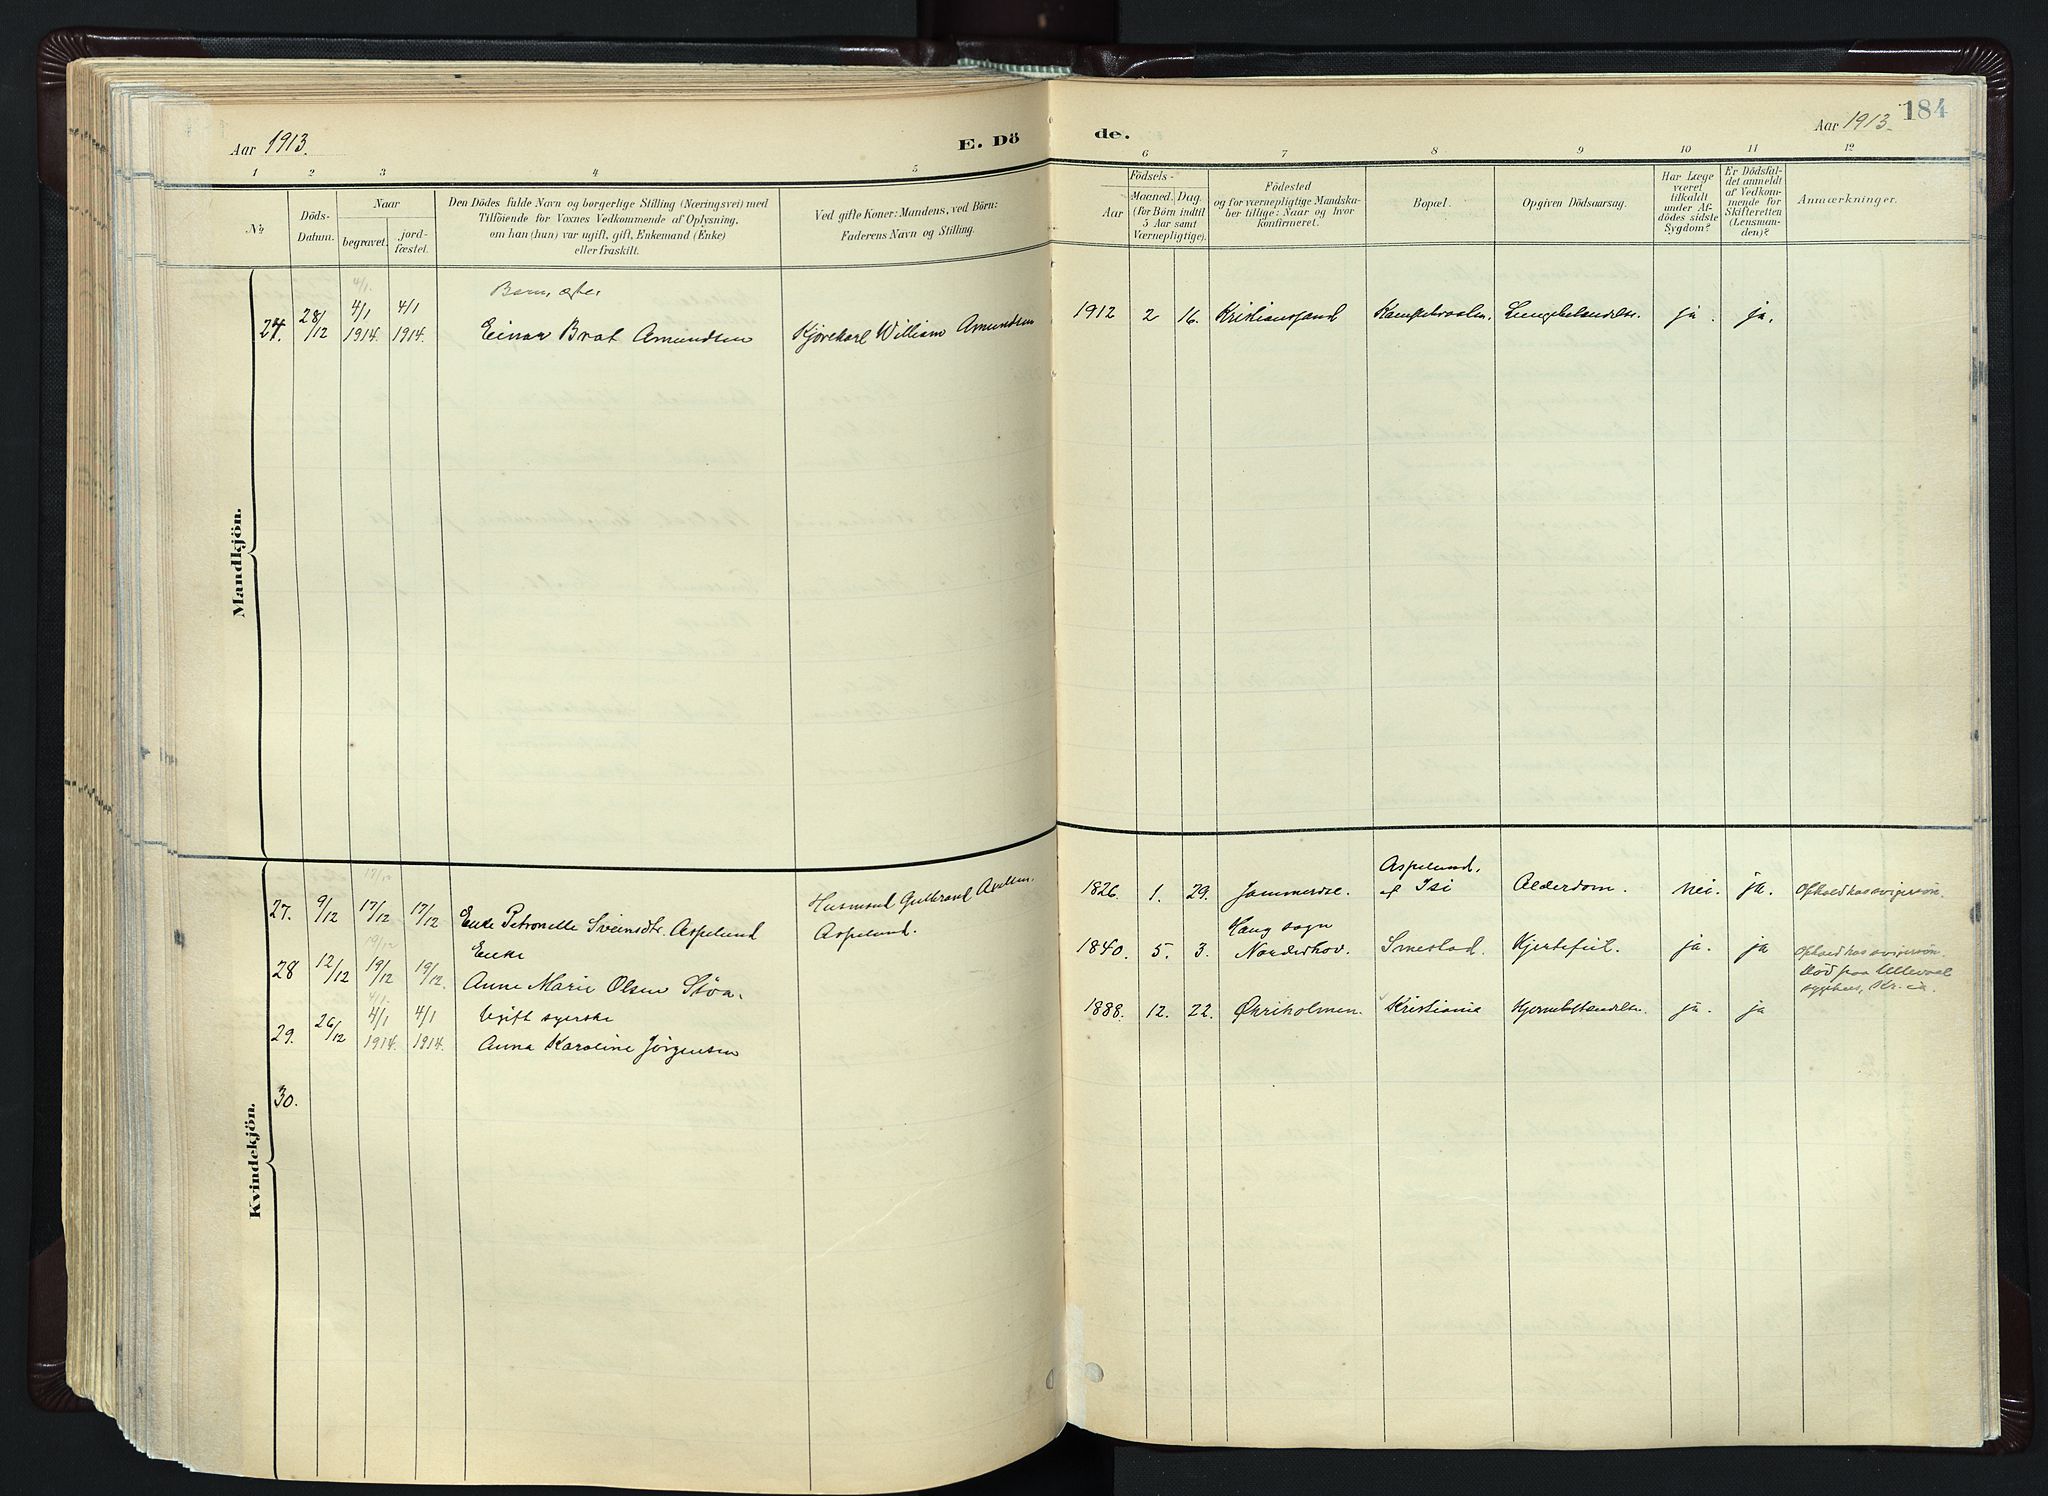 184
Aar 1913.
E. Dö
de.
Aar 1913.
1 2 3 4 5 6 7 8 9 10 11 12
No
Döds-
Datum.
Naar
begravet.
jord-
fæstet.
Den Dödes fulde Navn og borgerlige Stilling (Næringsvei) med
Tilföiende for Voxnes Vedkommende af Oplysning,
om han (hun) var ugift, gift, Enkemand (Enke)
eller fraskilt.
Ved gifte Koner: Mandens, ved Börn:
Faderens Navn og Stilling.
Födsels-
Aar
Maaned. Dag.
(for Börn indtil
5 Aar samt
Værnepligtige).
Födested
og for værnepligtige Mandska-
ber tillige: Naar og hvor
konfirmeret.
Bopæl.
Opgiven Dödsaarsag.
Har Læge
været
tilkaldt
under Af-
dödes sidste
Sygdom?
Er Dödsfal-
det anmeldt
af Vedkom-
mende for
Skifteretten
(Lensman-
den)?
Anmærkninger.
Mandkjön.
4/1.
Barn, ægte
24. 28/12 4/1 1914. 4/1 1914. Einar Brat Amundsen Kjørekarl William Amundsen 1912 2 16. Kristianssand Lungebetændelse. ja. ja.
Kvindekjön.
17/12
27. 9/12 17/12 17/12 Enke Petronelle Sveinsdtr. Aspelund Husmand Gulbrand
Aspelund. 1826. 1. 29. Aspelund.
Alderdom. nei. ja. Ophold hos svigersøn.
19/12 Enke Haug sogn
28 12/12 19/12 19/12. Anne Marie Olsen Støa. 1840. 5. 3. Norderhov. Smestad. Hjertefeil. ja. ja Ophold hos svigersøn.
4/1. Ugift syerske Død paa Ullevaal
sygehus, Kr.ia.
29. 26/12 4/1 1914. 4/1 1914. Anna Karoline Jörgensen 1888. 12. 22. Kristiania Hjernebetændelse. ja. ja
30.